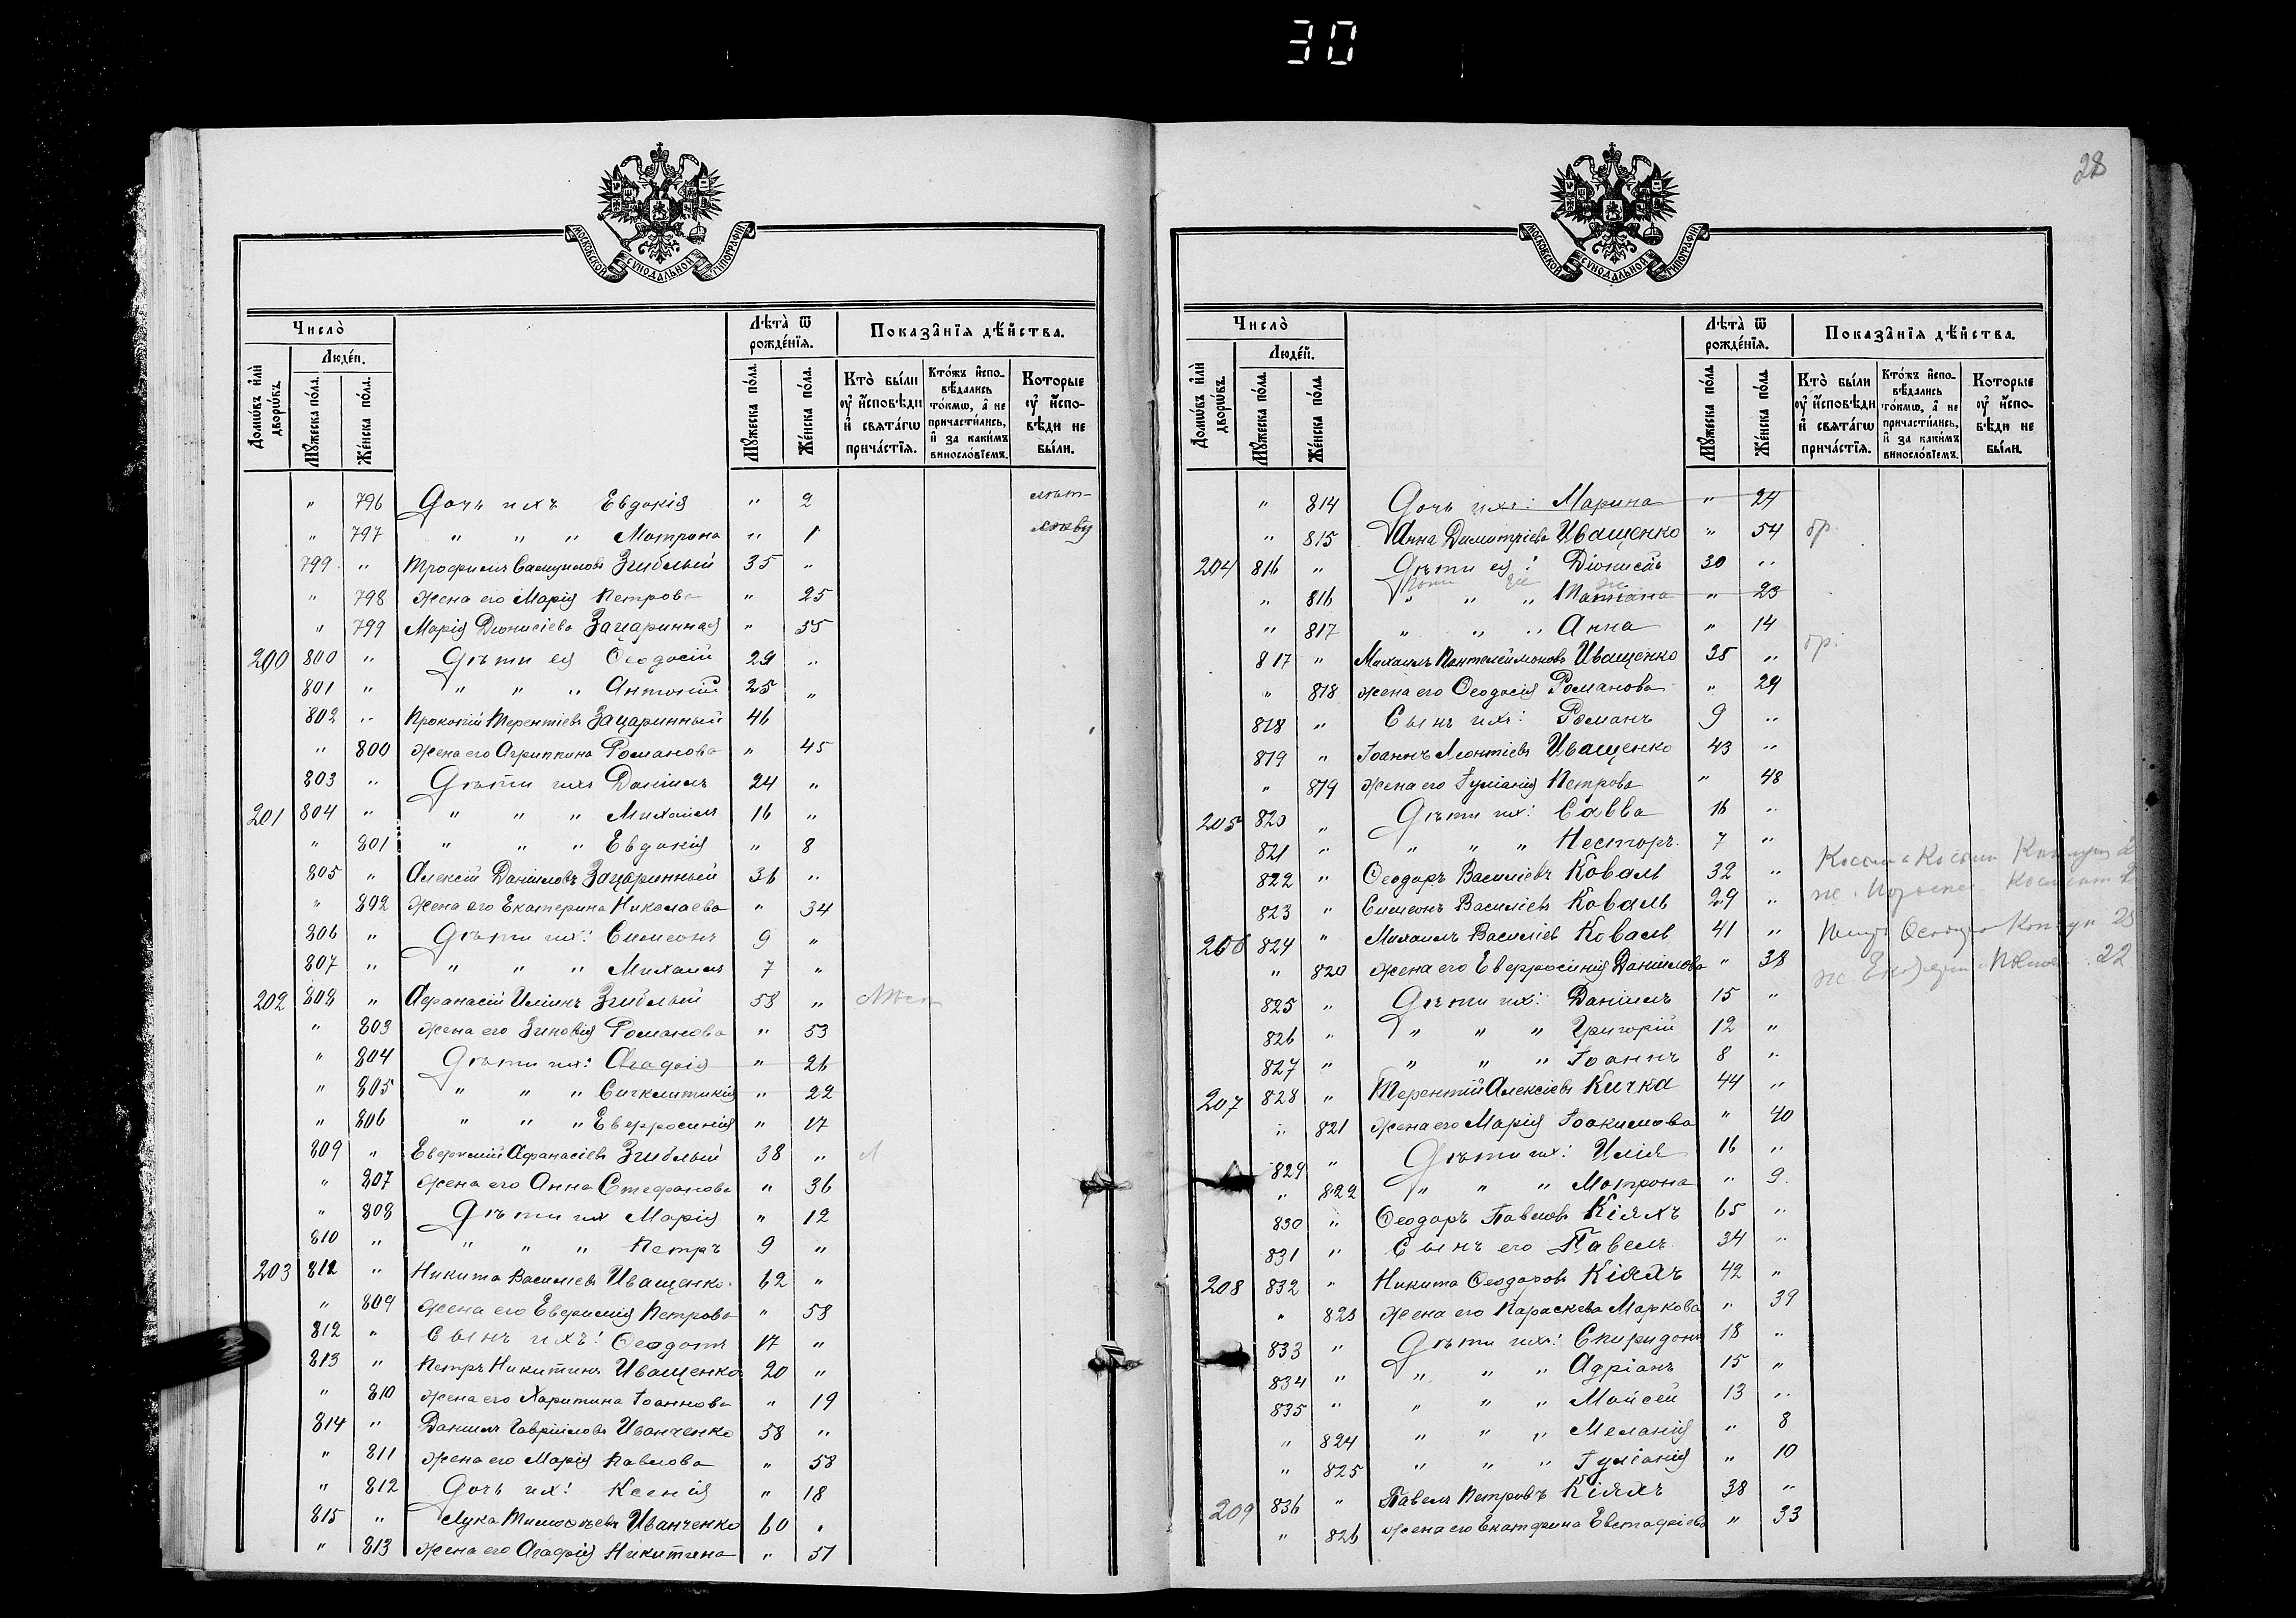 30
28
МОСКОВСКОЙ СѴНОДАЛЬНОЙ ТИПОГРАФІИ
Число̀
Людей.
Домѡвъ и҆лѝ дворѡвъ.
Мꙋжеска по́ла.
Же́нска по́ла.
Лѣта̀ ѿ рожде́нїѧ.
Мꙋжеска по́ла.
Же́нска по́ла.
Показа̑нїѧ дѣ́йства.
Кто̀ бы́ли ᲂу҆ и҆сповѣди и҆ свѧта́гѡ прича́стїѧ.
Кто́жъ и҆спо-вѣдались то́кмѡ, а҆ не причасти́лись, и҆ за каки́мъ винослові́емъ.
Которые ᲂу҆ и҆спо-вѣди не бы́ли.
" 796 Дочь ихъ Евдокія " 2
" 797 " " " Матрона " 1
799 " Трофимъ Самуиловъ Згиблый 35 "
" 798 жена его Марія Петрова " 25
" 799 Марія Діонисіева Зацаринная " 55
200 800 " Дѣти ея Ѳеодосій 29 "
801 " " " " Антоній 25 "
802 " Прокопій Терентіевъ Зацаринный 46
" 800 жена его Агриппина Романова " 45
803 " Дѣти ихъ Даніилъ 24 "
201 804 " " " " Михаилъ 16 "
" 801 " " " Евдокія " 8
805 " Алексій Даніиловъ Зацаринный 36 "
" 802 жена его Екатерина Николаева " 34
806 " Дѣти ихъ: Симеонъ 9 "
807 " " " " Михаилъ 7 "
202 808 " Аѳанасій Иліинъ Згиблый 58 "
" 803 жена его Зиновія Романова " 53
" 804 Дѣти ихъ: Агафія " 26
" 805 " " " Сигклитикія " 22
" 806 " " " Евфросинія " 17
809 " Евфимій Афанасіевъ Згиблый 38 "
" 807 жена его Анна Стефанова " 36
" 808 Дѣти ихъ Марія " 12
810 " " " " Петръ 9 "
203 812 " Никита Василіевъ Иващенко 62 "
" 809 жена его Евфимія Петрова " 58
812 " Сынъ ихъ: Ѳеодотъ 17 "
813 " Петръ Никитинъ Иващенко 20 "
" 810 жена его Харитина Іоаннова " 19
814 " Даніилъ Гавріиловъ Иванченко 58 "
" 811 жена его Марія Павлова " 58
" 812 Дочь ихъ: Ксенія " 18
815 " Лука Тимоѳеевъ Иванченко 60 "
" 813 жена его Агафія Никитина " 51
МОСКОВСКОЙ СѴНОДАЛЬНОЙ ТИПОГРАФІИ
Число̀
Людей.
Домѡвъ и҆лѝ дворѡвъ.
Мꙋжеска по́ла.
Же́нска по́ла.
Лѣта̀ ѿ рожде́нїѧ.
Мꙋжеска по́ла.
Же́нска по́ла.
Показа̑нїѧ дѣ́йства.
Кто̀ бы́ли ᲂу҆ и҆сповѣди и҆ свѧта́гѡ прича́стїѧ.
Кто́жъ и҆спо-вѣдались то́кмѡ, а҆ не причасти́лись, и҆ за каки́мъ винослові́емъ.
Которые ᲂу҆ и҆спо-вѣди не бы́ли.
" 814 Дочь ихъ: Марина " 24
" 815 Анна Димитріева Иващенко " 54
204 816 " Дѣти ея: Діонисій 30 "
" 816 " " " Татіана " 23
" 817 " " " Анна " 14
817 " Михаилъ Пантелеймоновъ Иващенко 35 "
" 818 жена его Ѳеодосія Романова " 29
818 " Сынъ ихъ: Романъ 9 "
819 " Іоаннъ Леонтіевъ Иващенко 43 "
" 819 жена его Іуліанія Петрова " 48
205 820 " Дѣти ихъ: Савва 16 "
821 " " " " Несторъ 7 "
822 " Ѳеодоръ Василіевъ Коваль 32 "
823 " Симеонъ Василіевъ Коваль 29 "
206 824 " Михаилъ Василіев Коваль 41 "
" 820 жена его Евфросинія Даніилова " 38
825 " Дѣти ихъ: Даніилъ 15 "
826 " " " " Григорій 12 "
827 " " " " Іоаннъ 8 "
207 828 " Терентій Алексіевъ Кичка 44 "
" 821 жена его Марія Іоакимова " 40
829 " Дѣти ихъ: Илія 16 "
" 822 " " " Матрона " 9
830 " Ѳеодоръ Павловъ Кіяхъ 65 "
831 " Сынъ его Павелъ 34 "
208 832 " Никита Ѳеодоровъ Кіяхъ 42 "
" 823 жена его Параскева Маркова " 39
833 " Дѣти ихъ: Спиридонъ 18 "
834 " " " " Адріанъ 15 "
835 " " " " Мойсей 13 "
" 824 " " " Меланія " 8
" 825 " " " Іуліанія " 10
209 836 " Павелъ Петровъ Кіяхъ 38 "
" 826 жена его Екатерина Евстафіева " 33